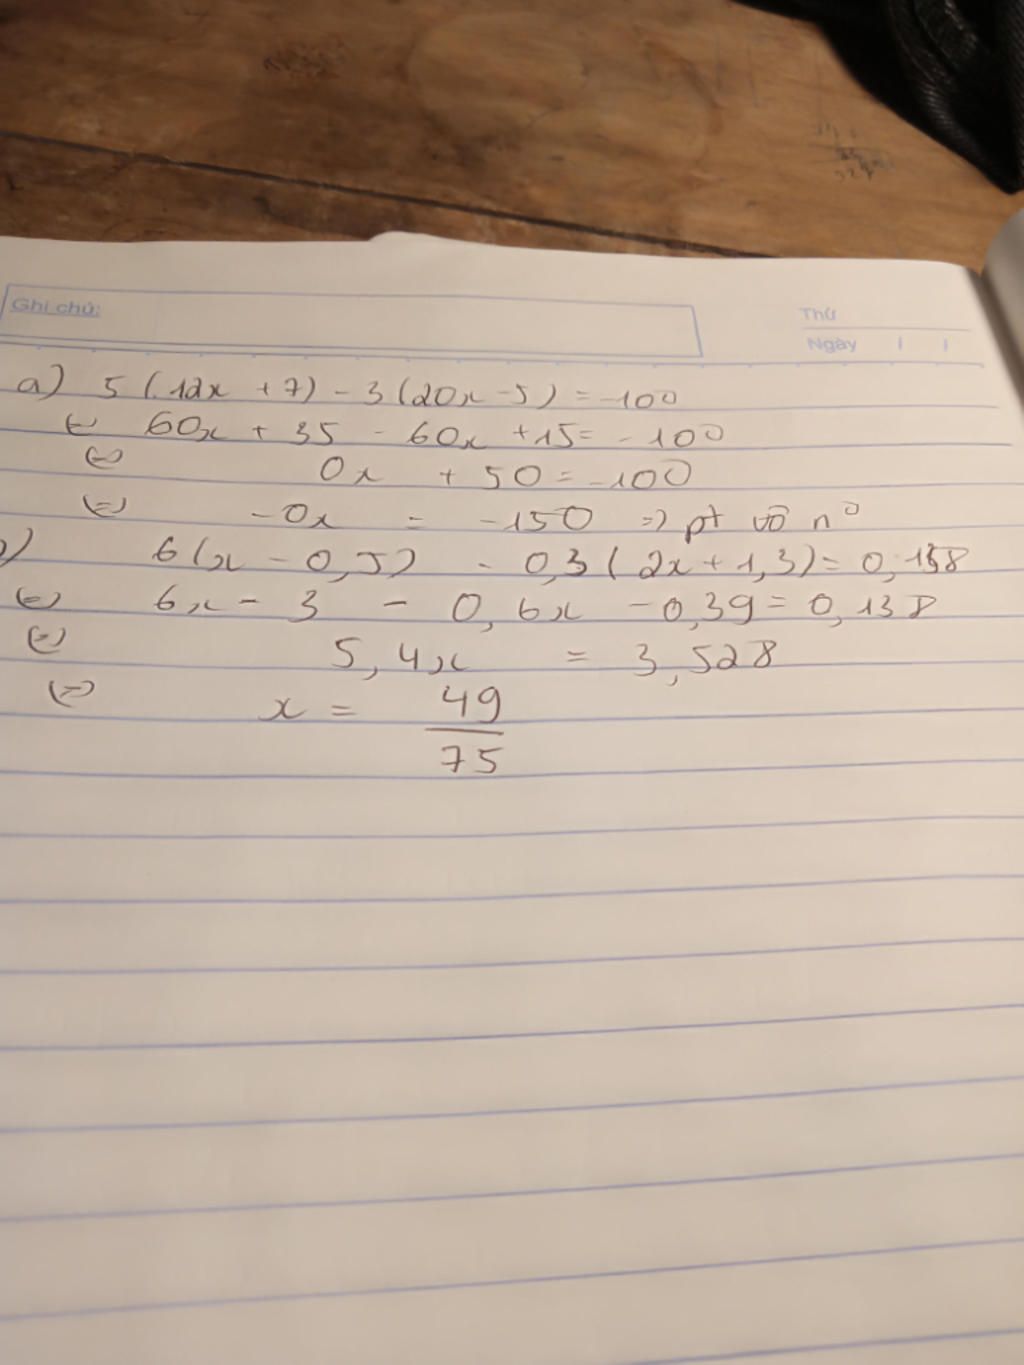 Ghi chú:
Thứ
Ngày / /
a) 5(12x + 7) - 3(20x - 5) = -100
⇔ 60x + 35 - 60x + 15 = -100
⇔ 0x + 50 = -100
⇔ -0x = -150 => pt vô n⁰
) 6(x - 0,5) - 0,3(2x + 1,3) = 0,138
⇔ 6x - 3 - 0,6x - 0,39 = 0,138
⇔ 5,4x = 3,528
⇔ x = 49
75